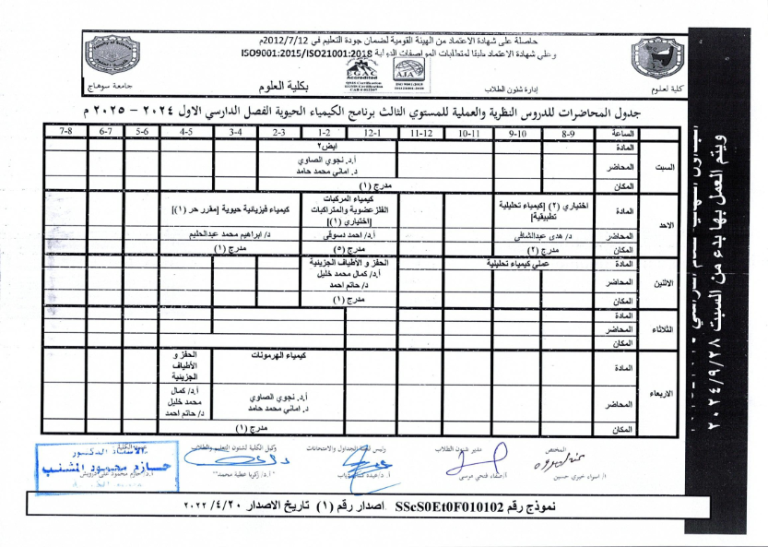 حاصلة على شهادة الاعتماد من الهيئة القومية لضمان جودة التعليم في 2012/7/12م
وعلى شهادة الاعتماد طبقا لمتطلبات المواصفات الدولية ISO9001:2015/ISO21001:2018
EGAC
AJA
كلية لعلوم
إدارة شئون الطلاب
بكلية العلوم
جامعة سوهاج
جدول المحاضرات للدروس النظرية والعملية للمستوي الثالث برنامج الكيمياء الحيوية الفصل الدارسي الاول ٢٠٢٤ - ٢٠٢٥ م
الساعة 8-9 9-10 10-11 11-12 12-1 1-2 2-3 3-4 4-5 5-6 6-7 7-8
السبت
المادة ايض٢
المحاضر أ.د. نجوي الصاوي
د. اماني محمد حامد
المكان مدرج (١)
الاحد
المادة اختياري (٢) [كيمياء تحليلية تطبيقية] كيمياء المركبات الفلزعضوية والمتراكبات [اختياري (١)] كيمياء فيزيائية حيوية [مقرر حر (١)]
المحاضر د/ هدى عبدالشافي أ.د/ احمد دسوقى د/ ابراهيم محمد عبدالحليم
المكان مدرج (٢) مدرج (٥) مدرج (١)
الاثنين
المادة عملي كيمياء تحليلية الحفز و الأطياف الجزيئية
المحاضر أ.د/ كمال محمد خليل
د/ حاتم احمد
المكان مدرج (١)
الثلاثاء
المادة
المحاضر
المكان
الاربعاء
المادة كيمياء الهرمونات الحفز و الأطياف الجزيئية
المحاضر أ.د. نجوي الصاوي
د. اماني محمد حامد
أ.د/ كمال محمد خليل
د/ حاتم احمد
المكان مدرج (١)
ويتم العمل بها بدء من السبت ٢٠٢٤/٩/٢٨
المختص
مدير شئون الطلاب
وكيل الكلية لشئون التعليم والطلاب
ا/ اسراء خيري حسين
أ/صفاء فتحي مرسى
أ.د/ زكريا عطية محمد
الأستاذ الدكتور
حازم محمود المشنب
نموذج رقم SScS0Et0F010102 اصدار رقم (١) تاريخ الاصدار ٢٠٢٢/٤/٢٠